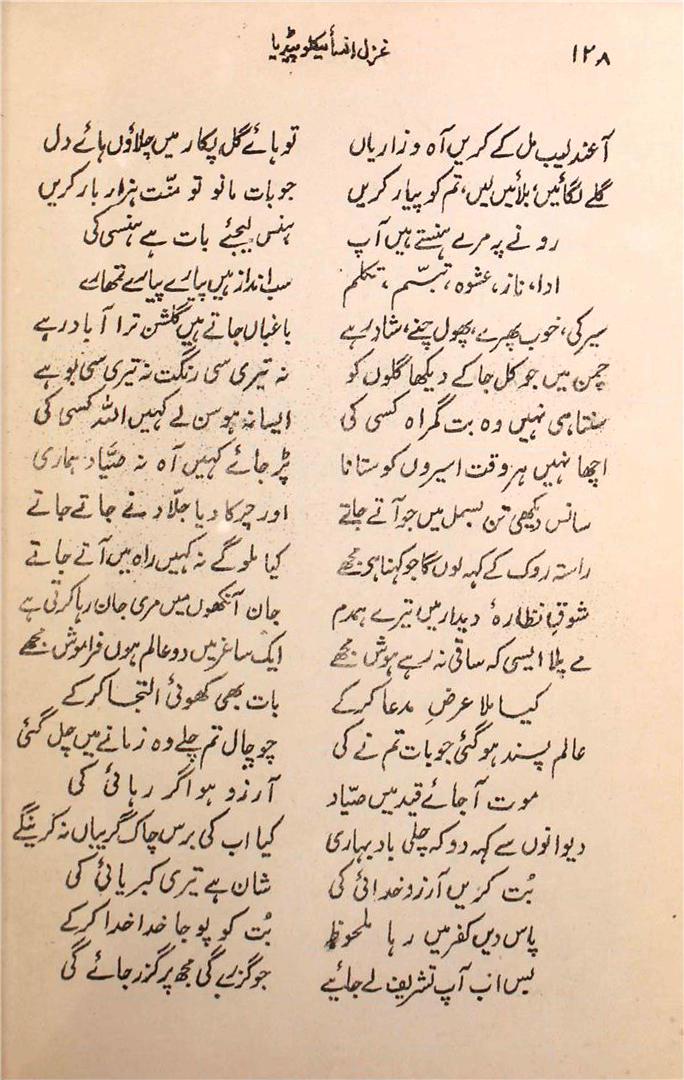 ۱۲۸ غزل انسائیکلوپیڈیا
آ عندلیب مل کے کریں آہ و زاریاں تو ہائے گل پکار میں چلاؤں ہائے دل
گلے لگائیں، بلائیں لیں، تم کو پیار کریں جو بات مانو تو منّت ہزار بار کریں
رونے پہ مرے ہنستے ہیں آپ ہنس لیجئے بات ہے ہنسی کی
ادا، ناز، عشوہ، تبسّم، تکلم سب انداز ہیں پیارے پیارے تمھارے
سیر کی، خوب پھرے، پھول چنے، شاد رہے باغباں جاتے ہیں گلشن ترا آباد رہے
چمن میں جو کل جا کے دیکھا گلوں کو نہ تیری سی رنگت نہ تیری سی بو ہے
سنتا ہی نہیں وہ بت گمراہ کسی کی ایسا نہ ہو سن لے کہیں اللہ کسی کی
اچھا نہیں ہر وقت اسیروں کو ستانا پڑ جائے کہیں آہ نہ صیّاد ہماری
سانس دیکھی تن بسمل میں جو آتے جاتے اور چرکا دیا جلّاد نے جاتے جاتے
راستہ روک کے کہہ لوں گا جو کہنا ہی مجھے کیا ملو گے نہ کہیں راہ میں آتے جاتے
شوق نظارۂ دیدار میں تیرے ہمدم جان آنکھوں میں مری جان رہا کرتی ہے
مے پلا ایسی کہ ساقی نہ رہے ہوش مجھے ایک ساغر میں دو عالم ہوں فراموش مجھے
کیا ملا عرضِ مدعا کر کے بات بھی کھوئی التجا کر کے
عالم پسند ہو گئی جو بات تم نے کی جو چال تم چلے وہ زمانے میں چل گئی
موت آ جائے قید میں صیّاد آرزو ہو اگر رہائی کی
دیوانوں سے کہہ دو کہ چلی باد بہاری کیا اب کی برس چاک گریباں نہ کرینگے
بُت کریں آرزو خدائی کی شان ہے تیری کبریائی کی
پاس دیں کفر میں رہا ملحوظ بُت کو پوجا خدا خدا کر کے
بس اب آپ تشریف لے جائیے جو گزرے گی مجھ پر گزر جائے گی